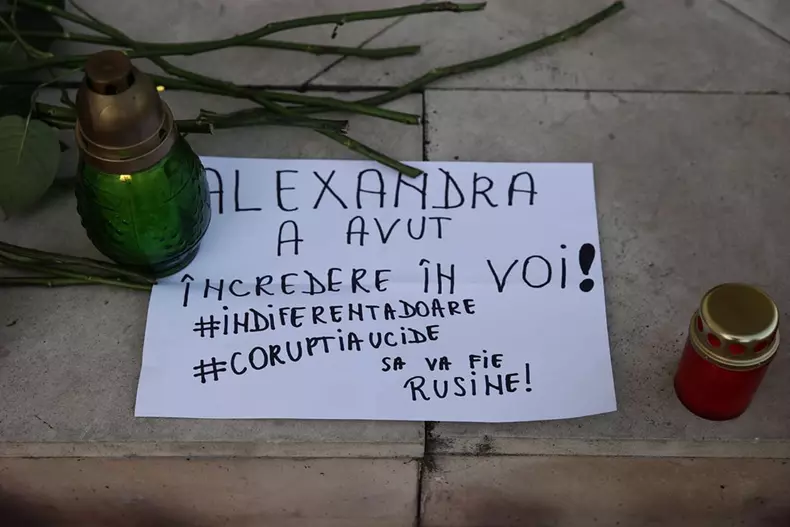 ALEXANDRA
A AVUT
ÎNCREDERE ÎN VOI!
#INDIFERENTADOARE
#CORUPTIAUCIDE
SA VA FIE
RUSINE!